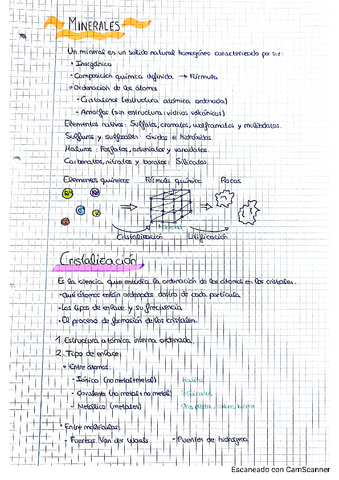 MINERALES
Un mineral es un sólido natural homogéneo caracterizado por ser:
• Inorgánico
• Composición química definida → Fórmula
• Ordenación de los átomos
• Cristalinos (estructura atómica ordenada)
• Amorfos (sin estructura: vidrios volcánicos)
Elementos nativos: Sulfatos, cromatos, wolframatos y molibdatos.
Sulfuros y sulfosales: óxidos e hidróxidos
Haluros: Fosfatos, arseniatos y vanadatos
Carbonatos, nitratos y boratos: Silicatos
Elementos químicos Fórmula química Rocas
Mineral
Cristalización Litificación
Cristalización
Es la ciencia que estudia la ordenación de los átomos en los cristales.
• Qué átomos están ordenados dentro de cada partícula
• Los tipos de enlace y su frecuencia
• El proceso de formación de los cristales.
1. Estructura atómica interna ordenada.
2. Tipo de enlace:
• Entre átomos:
- Iónico (no metal+metal)
- Covalente (no metal+no metal)
- Metálico (metales)
• Entre moléculas:
- Fuerzas Van der Waals - Puentes de hidrógeno
Escaneado con CamScanner